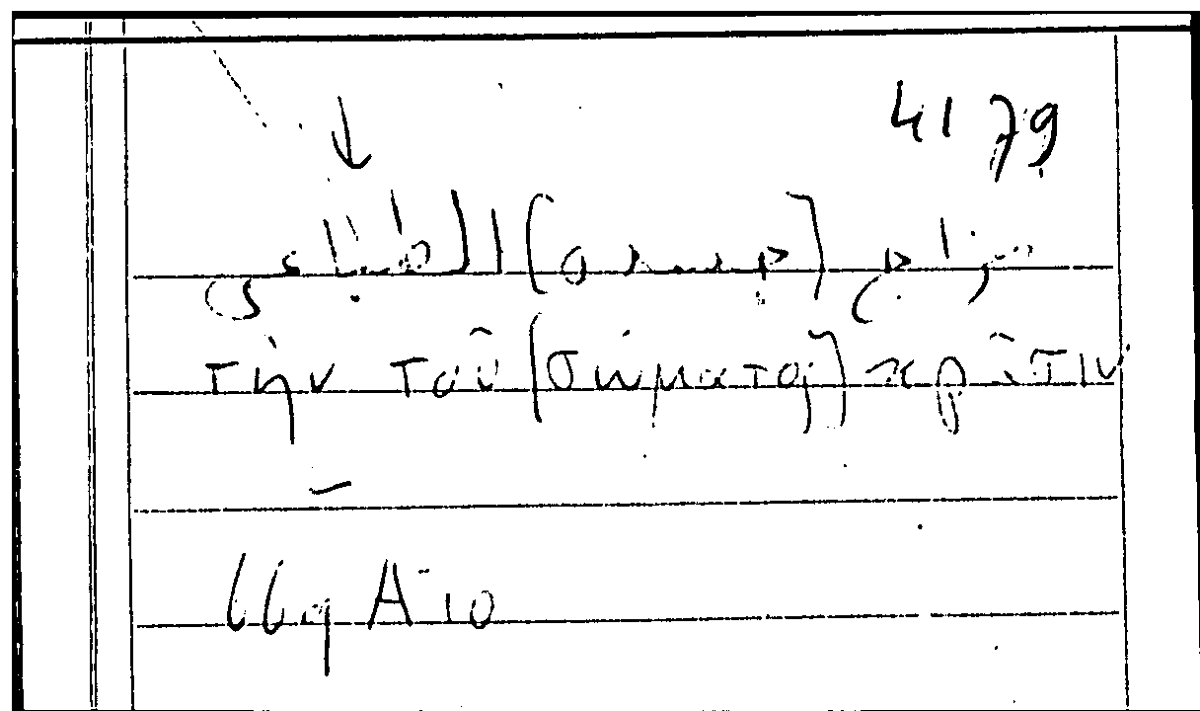 4179
مزاج (جسده) الطباعي
τὴν τοῦ (σώματος) κρᾶσιν
669 A 10